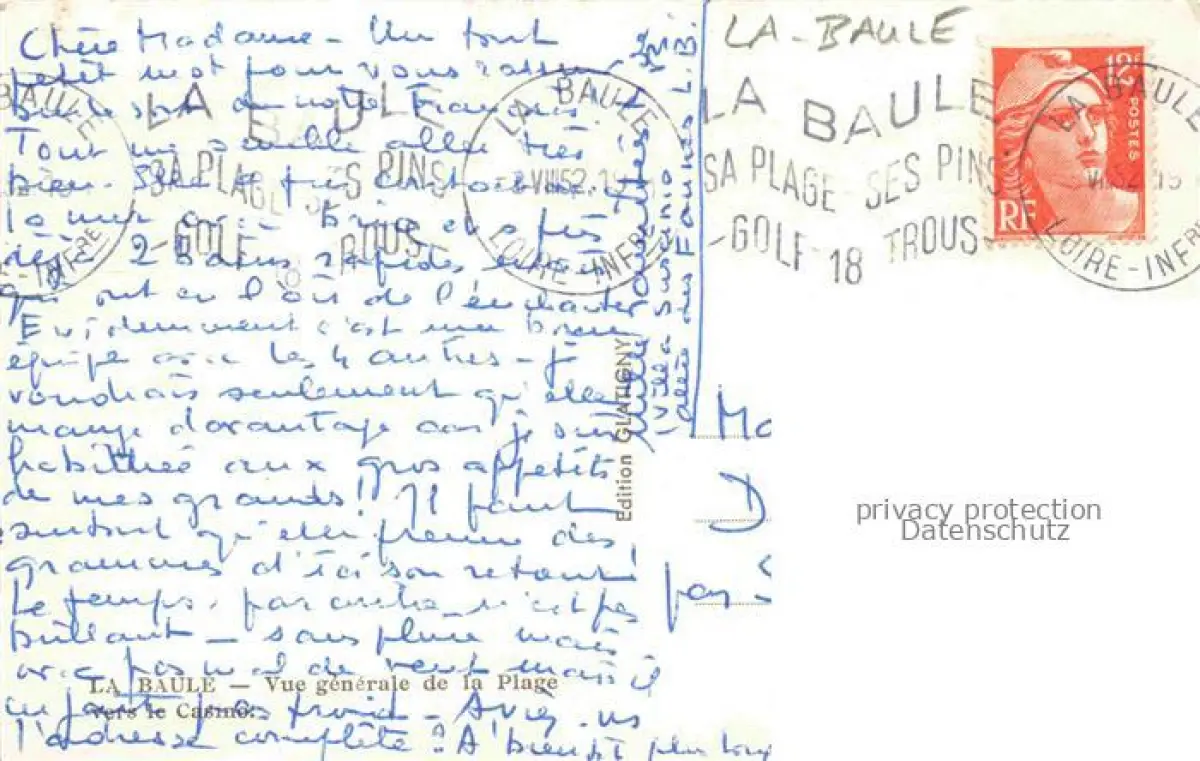 Chère Madame - Un tout
petit mot pour vous rassurer
de notre
Tout me semble aller très
bien.
la mer
2 bains rapides
qui ont eu l'air de l'enchanter
Evidemment c'est une
équipe avec les 4 autres - je
voudrais seulement qu'elle
mange davantage car je suis
habituée aux gros appétits
de mes grands! Il faut
surtout qu'elle prenne des
grammes d'ici son retour!
Le temps, par contre n'est pas
brillant - sans pluie mais
avec pas mal de vent mais il
ne fait pas froid - Aviez-vs
l'adresse complète? A bientôt plus long
LA BAULE — Vue générale de la Plage
vers le Casino.
Villa Susiano
allée des Faunes L.B.
Edition GLATIGNY
LA-BAULE
LA BAULE
SA PLAGE - SES PINS
-GOLF-18 TROUS-
LA BAULE
SA PLAGE SES PINS
-GOLF 18 TROUS-
LA BAULE
VIII 52
LOIRE-INFRE
12F
POSTES
RF
LA BAULE
LOIRE-INFRE
BAULE
INFRE
Ma
D
par S
privacy protection
Datenschutz